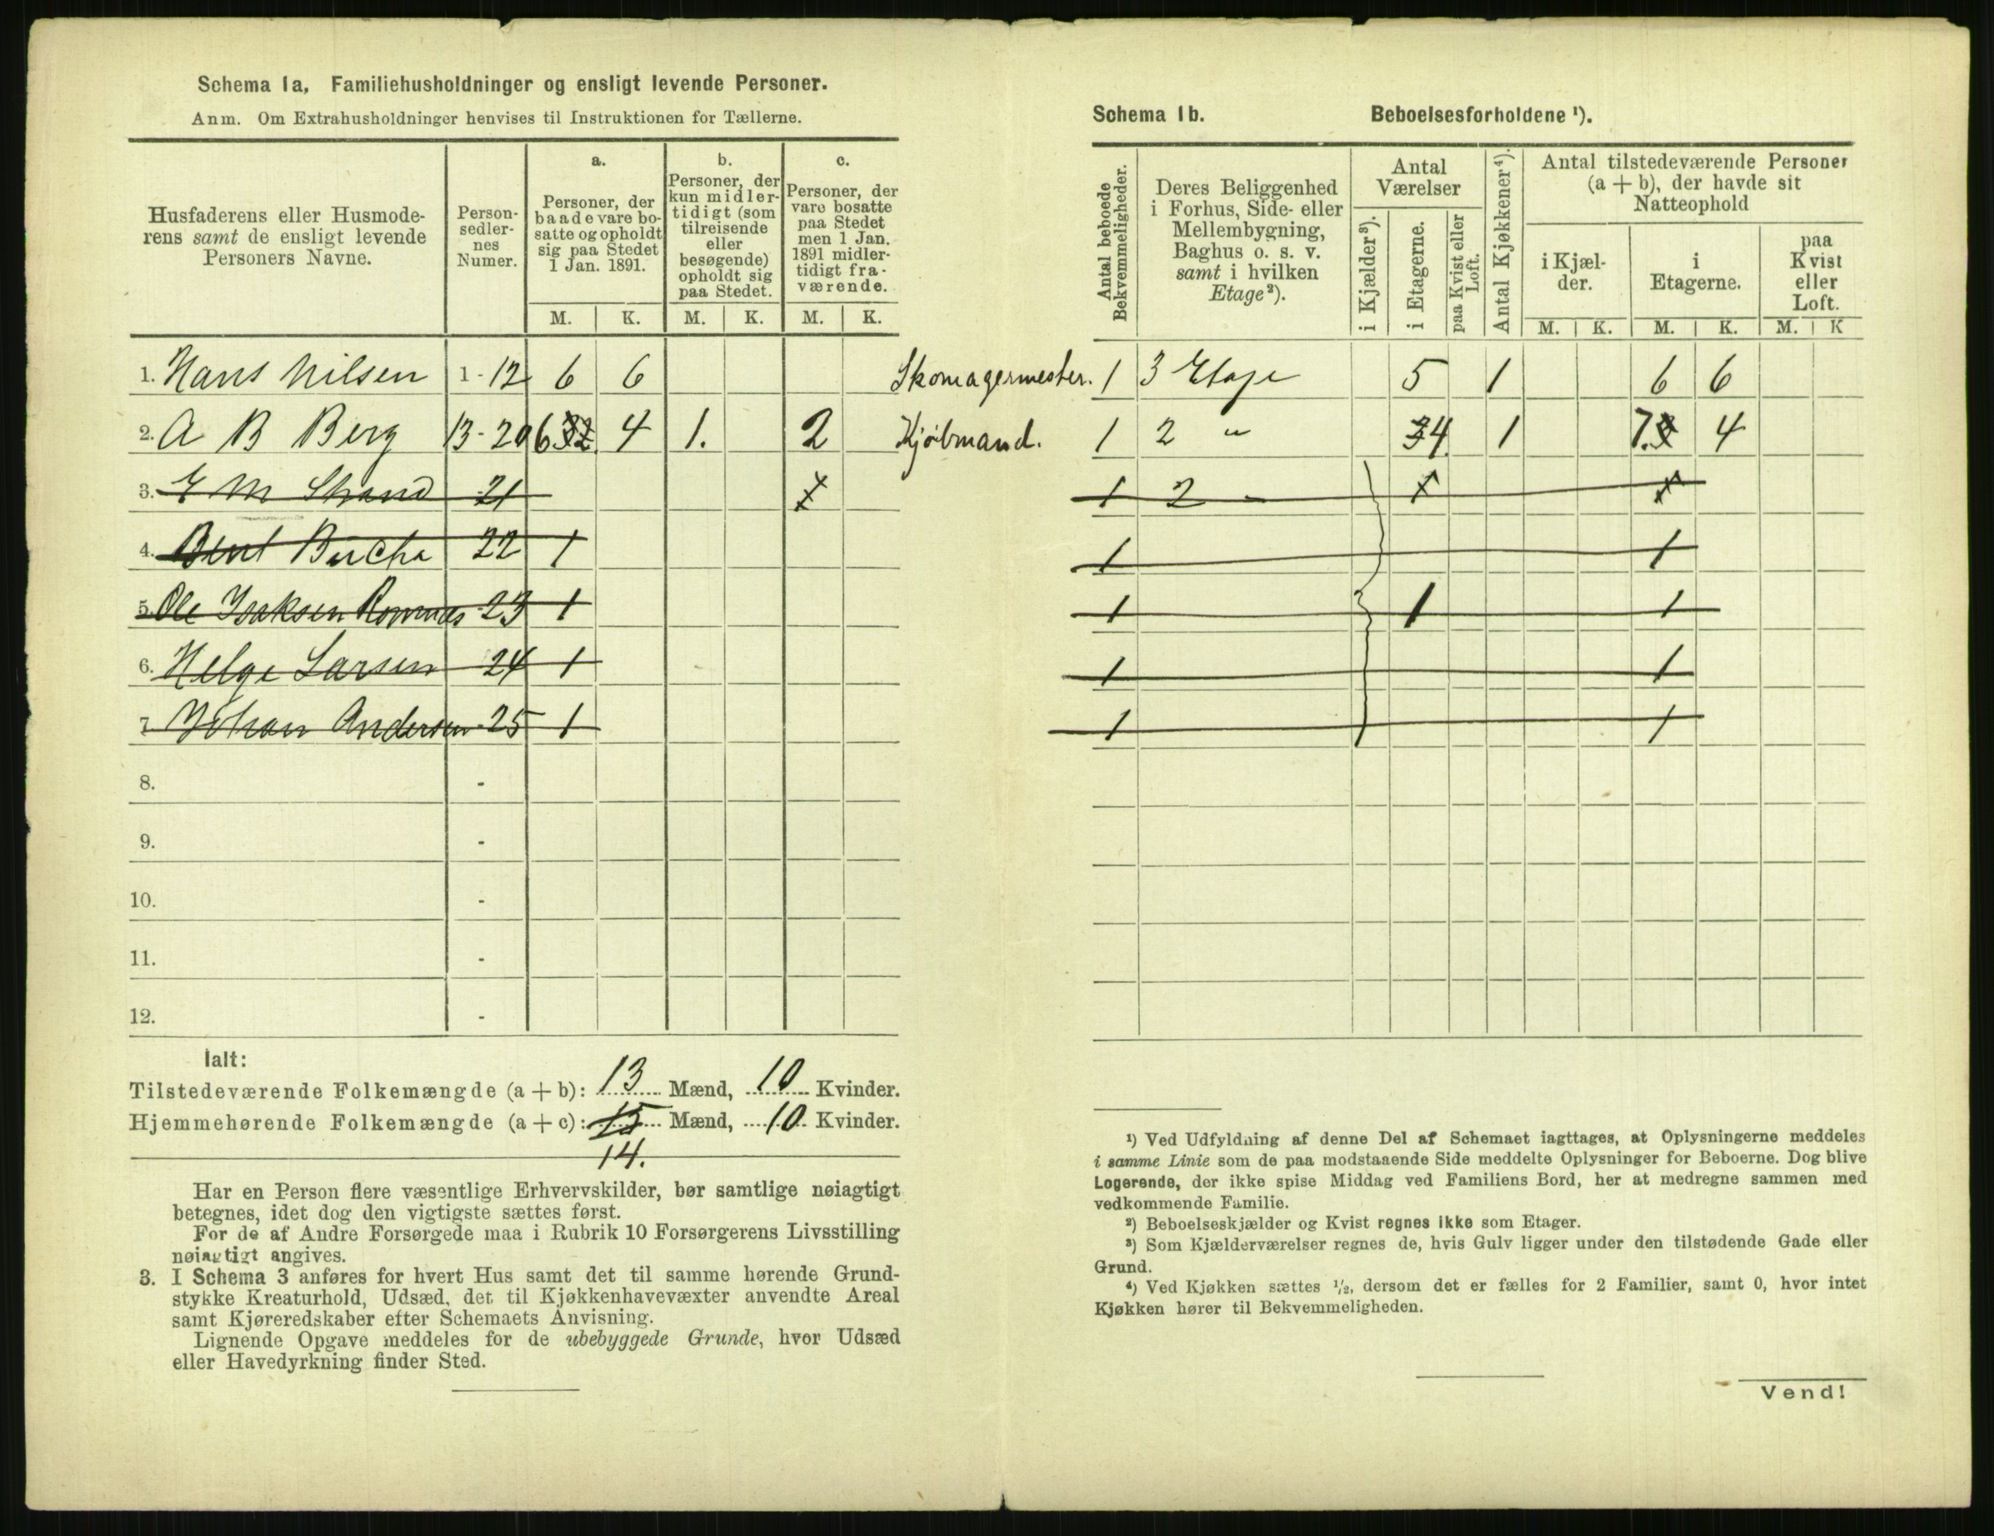 Schema 1a, Familiehusholdninger og ensligt levende Personer.
Anm. Om Extrahusholdninger henvises til Instruktionen for Tællerne.
Husfaderens eller Husmode-
rens samt de ensligt levende
Personers Navne.
Person-
sedler-
nes
Numer.
a.
Personer, der
baade vare bo-
satte og opholdt
sig paa Stedet
1 Jan. 1891.
b.
Personer, der
kun midler-
tidigt (som
tilreisende
eller
besøgende)
opholdt sig
paa Stedet.
c.
Personer, der
vare bosatte
paa Stedet
men 1 Jan.
1891 midler-
tidigt fra-
værende.
M. K. M. K. M. K.
1. Hans Nilsen 1 - 12 6 6 Skomagermester.
2. A B Berg 13 - 20 6 4 1. 2 Kjøbmand.
3. E M Strand 21
4. Bent Bucha 22 1
5. Ole Isaksen Romnæs 23 1
6. Helge Larsen 24 1
7. Johan Andersen 25 1
8. -
9. -
10. -
11. -
12. -
Ialt:
Tilstedeværende Folkemængde (a + b): 13 Mænd, 10 Kvinder.
Hjemmehørende Folkemængde (a + c): 15 Mænd, 10 Kvinder.
14.
Har en Person flere væsentlige Erhvervskilder, bør samtlige nøiagtigt
betegnes, idet dog den vigtigste sættes først.
For de af Andre Forsørgede maa i Rubrik 10 Forsørgerens Livsstilling
nøiagtigt angives.
3. I Schema 3 anføres for hvert Hus samt det til samme hørende Grund-
stykke Kreaturhold, Udsæd, det til Kjøkkenhavevæxter anvendte Areal
samt Kjøreredskaber efter Schemaets Anvisning.
Lignende Opgave meddeles for de ubebyggede Grunde, hvor Udsæd
eller Havedyrkning finder Sted.
Schema 1b. Beboelsesforholdene ¹).
Antal beboede
Bekvemmeligheder.
Deres Beliggenhed
i Forhus, Side- eller
Mellembygning,
Baghus o. s. v.
samt i hvilken
Etage²).
Antal
Værelser
i Kjælder³).
i Etagerne.
paa Kvist eller
Loft.
Antal Kjøkkener⁴).
Antal tilstedeværende Personer
(a + b), der havde sit
Natteophold
i Kjæl-
der.
i
Etagerne.
paa
Kvist
eller
Loft.
M. K. M. K. M. K
1 3 Etage 5 1 6 6
1 2 " 34 1 7. 4
1 2 -
1 1
1 1 1
1 1
1 1
¹) Ved Udfyldning af denne Del af Schemaet iagttages, at Oplysningerne meddeles
i samme Linie som de paa modstaaende Side meddelte Oplysninger for Beboerne. Dog blive
Logerende, der ikke spise Middag ved Familiens Bord, her at medregne sammen med
vedkommende Familie.
²) Beboelseskjælder og Kvist regnes ikke som Etager.
³) Som Kjælderværelser regnes de, hvis Gulv ligger under den tilstødende Gade eller
Grund.
⁴) Ved Kjøkken sættes ½, dersom det er fælles for 2 Familier, samt 0, hvor intet
Kjøkken hører til Bekvemmeligheden.
Vend!